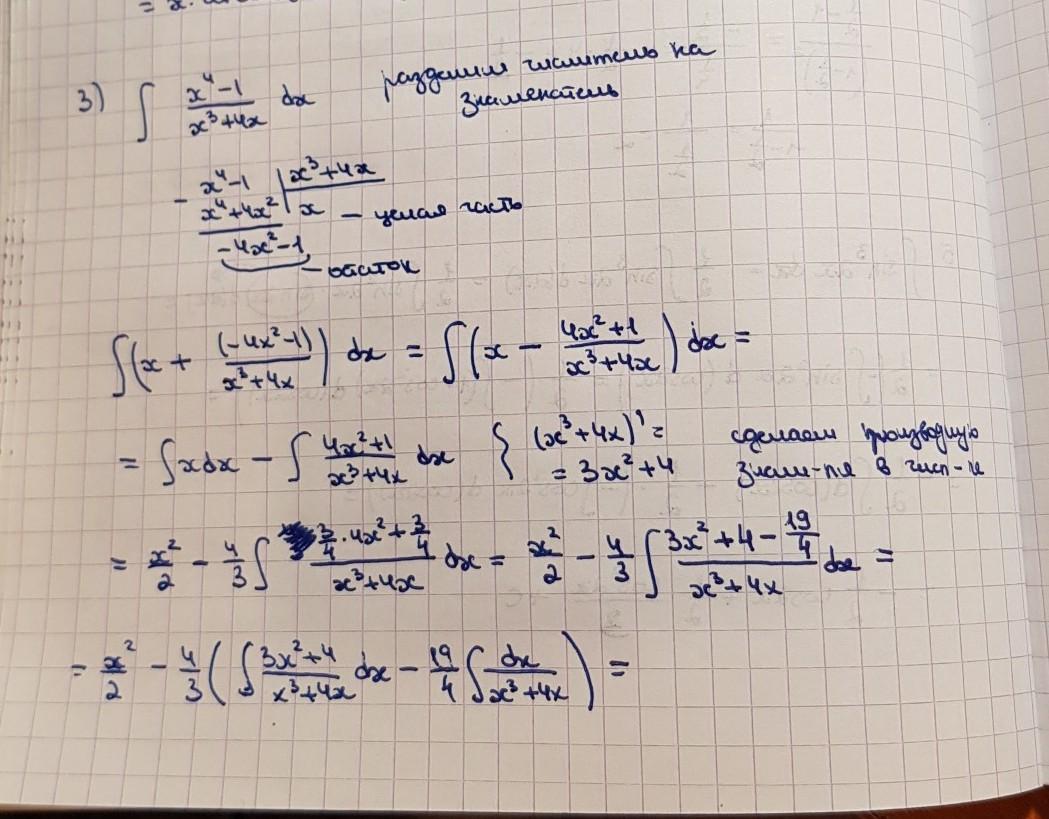 3) ∫ (x⁴-1)/(x³+4x) dx разделим числитель на
знаменатель
- x⁴-1 | x³+4x
x⁴+4x² | x — целая часть
-4x²-1 — остаток
∫(x + (-4x²-1)/(x³+4x)) dx = ∫(x - (4x²+1)/(x³+4x)) dx =
= ∫xdx - ∫ (4x²+1)/(x³+4x) dx { (x³+4x)' = сделаем производную
= 3x²+4 знам-ля в числ-ле
= x²/2 - 4/3 ∫ (3/4·4x²+3/4)/(x³+4x) dx = x²/2 - 4/3 ∫ (3x²+4-19/4)/(x³+4x) dx =
= x²/2 - 4/3 (∫ (3x²+4)/(x³+4x) dx - 19/4 ∫ dx/(x³+4x)) =